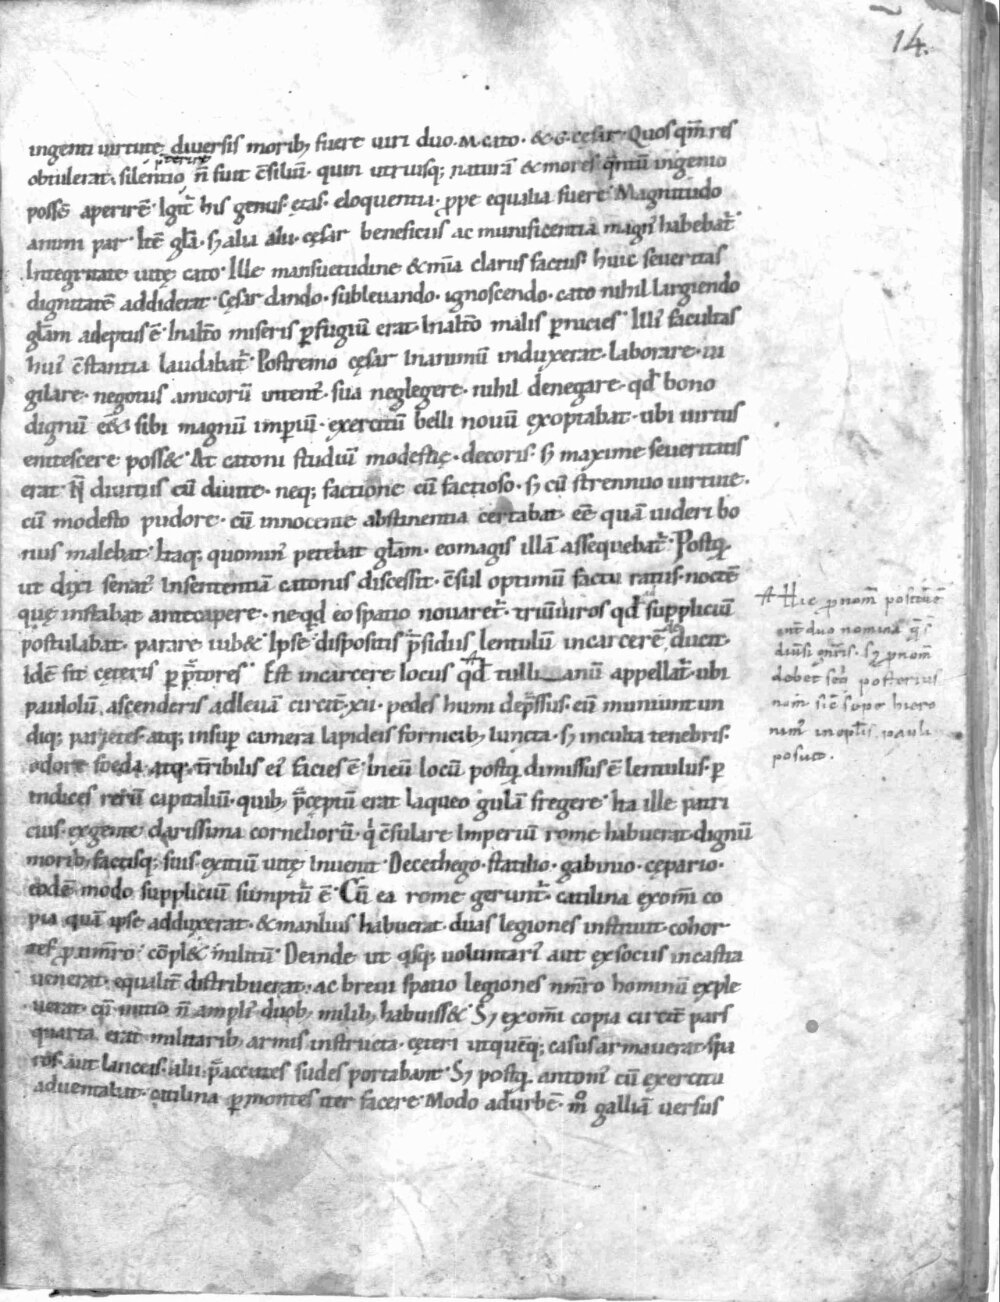 14.
ingenti uirtute, diuersis morib; fuere uiri duo. M. cato. & .G. cesar. Quos qm̄ res
obtulerat, silentio p̄terire n̄ fuit c̄siliū. quin utriusq; naturā & mores q̄ntū ingenio
possē aperirē. Igit̄ his genus. ętas. eloquentia. prope equalia fuere. Magnitudo
animi par. Itē gl̄a. sȝ alia alii. cęsar beneficiis ac munificentia magn᷒ habebat᷑.
Integritate uitę cato. Ille mansuetudine & mīa clarus factus. huic seueritas
dignitatē addiderat. Cęsar dando. subleuando. ignoscendo. cato nihil largiendo
gl̄am adeptus ē. Inalt̄o miseris p̱fugiū erat. Inalt̄o malis p̱nicies. Illi᷒ facultas
hui᷒ c̄stantia laudabat᷑. Postremo cęsar inanimū induxerat. laborare. ui
gilare. negotiis amicorū intent᷒. sua neglegere. nihil denegare. qd̄ dono
dignū eēt sibi magnū imp̱iū. exercitū bellū nouū exoptabat. ubi uirtus
enitescere poss&. At catoni studiū modestię. decoris. sȝ maxime seueritatis
erat. N̄ diuitiis cū diuite. neq; factione cū factioso. sȝ cū strennuo uirtute.
cū modesto pudore. cū innocente abstinentia certabat. eē quā uideri bo
nus malebat. Itaq; quo min᷒ petebat gl̄am. eo magis illā assequebat᷑. Postq̄
ut dixi senat᷒ insententiā catonis discessit. c̄sul optimū factu ratus. noctē
quę instabat antecapere. ne qd eo spatio nouaret᷑. triūuiros qd̄ suppliciū
postulabat. parare iub&. Ipse dispositis p̄sidiis lentulū incarcerē ducit.
Idē fit cęteris p̱ p̄tores. Est incarcere locus qd̄ tullianū appellat᷑. ubi
paululū ascenderis adleuā circit̄ .xii. pedes humi dep̄ssus. eū muniunt un
diq; parietes. atq; insup̱ camera lapideis fornicib; iuncta. sȝ inculta tenebris.
odore foeda. atq; t̄ribilis ei᷒ facies ē. Ineū locū postq̄ dimissus ē lentulus. p̱
indices rerū capitaliū. quib; p̄ceptū erat laqueo gulā fregere. Ita ille patri
cius. exgente clarissima corneliorū. q̇ c̄sulare imperiū rome habuerat. dignū
morib; factisq; suis exitiū uitę inuenit. De cethego. statilio. gabinio. cępario.
eodē modo suppliciū sumptū ē. Cū ea rome gerunt᷑. catilina exom̄i co
pia quā ipse adduxerat. & manlius habuerat. duas legiones instituit. cohor
tes p̱ num̄ro cōpl& militū. Deinde ut q̇sq; uoluntari᷒ aut exsociis incastra
uenerat. equalit̄ distribuerat. ac breui spatio legiones num̄ro hominū exple
uerat. cū initio n̄ ampli᷒ duob; milib; habuiss&. Sȝ exom̄i copia circit̄ pars
quarta erat militarib; armis instructa. cęteri ut quēq; casus armauerat. spa
ros. aut lanceas. alii p̄acutas sudes portabant. Sȝ postq̄ antoni᷒ cū exercitu
aduentabat. catilina p̱ montes iter facere. Modo adurbē. m̊ galliā uersus
Hic p̱nom̄ positū ē
int̄ duo nomina q̄ s̄
diu̅si gn̄ris. sȝ p̱nom̄
debet seq̇ posterius
nom̄ sic̄ sepe hiero
nim᷒ in ep̄lis pauli
posuit.